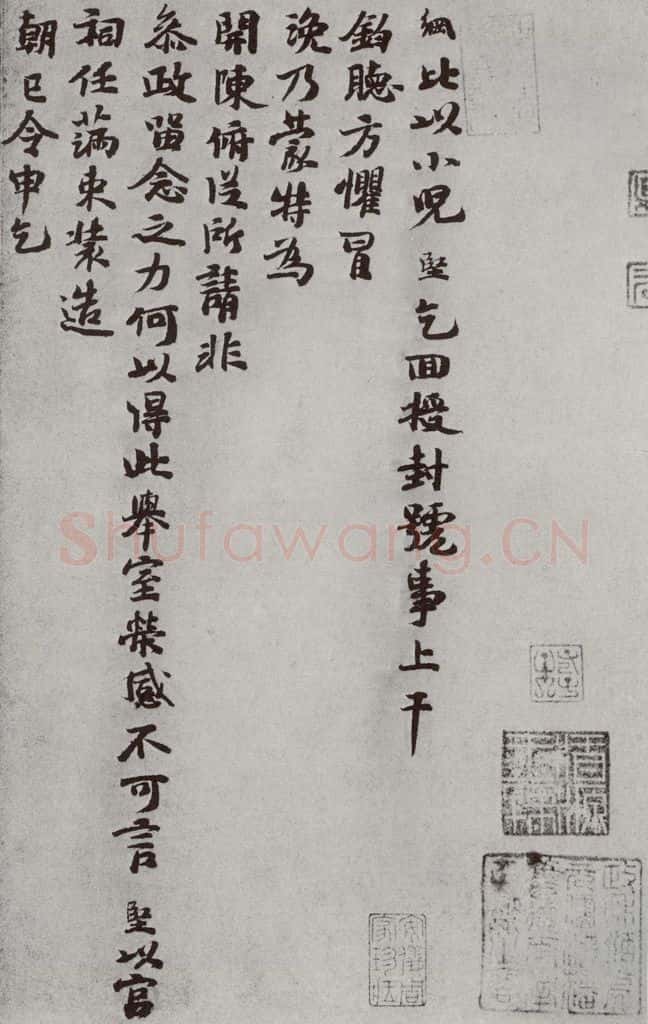 綱比以小児堅乞回授封號事上干
鈞聽方懼冒
浼乃蒙特為
開陳俯從所請非
叅政留念之力何以得此舉室榮感不可言堅以宮
祠任滿束装造
朝已令申乞
Shufawang.CN